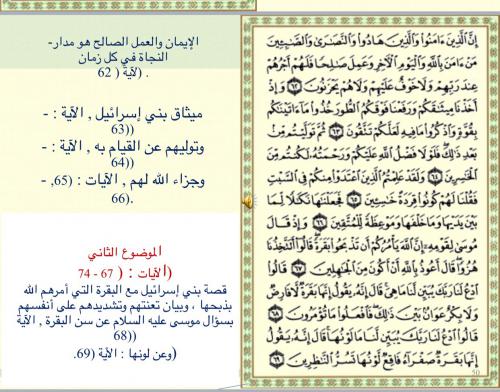 إِنَّ ٱلَّذِينَ ءَامَنُوا۟ وَٱلَّذِينَ هَادُوا۟ وَٱلنَّصَـٰرَىٰ وَٱلصَّـٰبِـِٔينَ
مَنْ ءَامَنَ بِٱللَّهِ وَٱلْيَوْمِ ٱلْـَٔاخِرِ وَعَمِلَ صَـٰلِحًا فَلَهُمْ أَجْرُهُمْ
عِندَ رَبِّهِمْ وَلَا خَوْفٌ عَلَيْهِمْ وَلَا هُمْ يَحْزَنُونَ ٦٢ وَإِذْ
أَخَذْنَا مِيثَـٰقَكُمْ وَرَفَعْنَا فَوْقَكُمُ ٱلطُّورَ خُذُوا۟ مَآ ءَاتَيْنَـٰكُم
بِقُوَّةٍ وَٱذْكُرُوا۟ مَا فِيهِ لَعَلَّكُمْ تَتَّقُونَ ٦٣ ثُمَّ تَوَلَّيْتُم مِّنۢ
بَعْدِ ذَٰلِكَ فَلَوْلَا فَضْلُ ٱللَّهِ عَلَيْكُمْ وَرَحْمَتُهُۥ لَكُنتُم مِّنَ
ٱلْخَـٰسِرِينَ ٦٤ وَلَقَدْ عَلِمْتُمُ ٱلَّذِينَ ٱعْتَدَوْا۟ مِنكُمْ فِى ٱلسَّبْتِ
فَقُلْنَا لَهُمْ كُونُوا۟ قِرَدَةً خَـٰسِـِٔينَ ٦٥ فَجَعَلْنَـٰهَا نَكَـٰلًا لِّمَا
بَيْنَ يَدَيْهَا وَمَا خَلْفَهَا وَمَوْعِظَةً لِّلْمُتَّقِينَ ٦٦ وَإِذْ قَالَ
مُوسَىٰ لِقَوْمِهِۦٓ إِنَّ ٱللَّهَ يَأْمُرُكُمْ أَن تَذْبَحُوا۟ بَقَرَةً قَالُوٓا۟ أَتَتَّخِذُنَا
هُزُوًا قَالَ أَعُوذُ بِٱللَّهِ أَنْ أَكُونَ مِنَ ٱلْجَـٰهِلِينَ ٦٧ قَالُوا۟
ٱدْعُ لَنَا رَبَّكَ يُبَيِّن لَّنَا مَا هِىَ قَالَ إِنَّهُۥ يَقُولُ إِنَّهَا بَقَرَةٌ لَّا فَارِضٌ
وَلَا بِكْرٌ عَوَانٌۢ بَيْنَ ذَٰلِكَ فَٱفْعَلُوا۟ مَا تُؤْمَرُونَ ٦٨
قَالُوا۟ ٱدْعُ لَنَا رَبَّكَ يُبَيِّن لَّنَا مَا لَوْنُهَا قَالَ إِنَّهُۥ يَقُولُ
إِنَّهَا بَقَرَةٌ صَفْرَآءُ فَاقِعٌ لَّوْنُهَا تَسُرُّ ٱلنَّـٰظِرِينَ ٦٩
50
الإيمان والعمل الصالح هو مدار-
النجاة في كل زمان
. (لآية ) 62
ميثاق بني إسرائيل , الآية : -
((63
وتوليهم عن القيام به , الآية : -
((64
وجزاء الله لهم , الآيات : (65, -
.(66
الموضوع الثاني
(الآيات : ( 67 - 74
قصة بني إسرائيل مع البقرة التي أمرهم الله
بذبحها , وبيان تعنتهم وتشديدهم على أنفسهم
بسؤال موسى عليه السلام عن سن البقرة , الآية
((68
(وعن لونها : الآية (69.